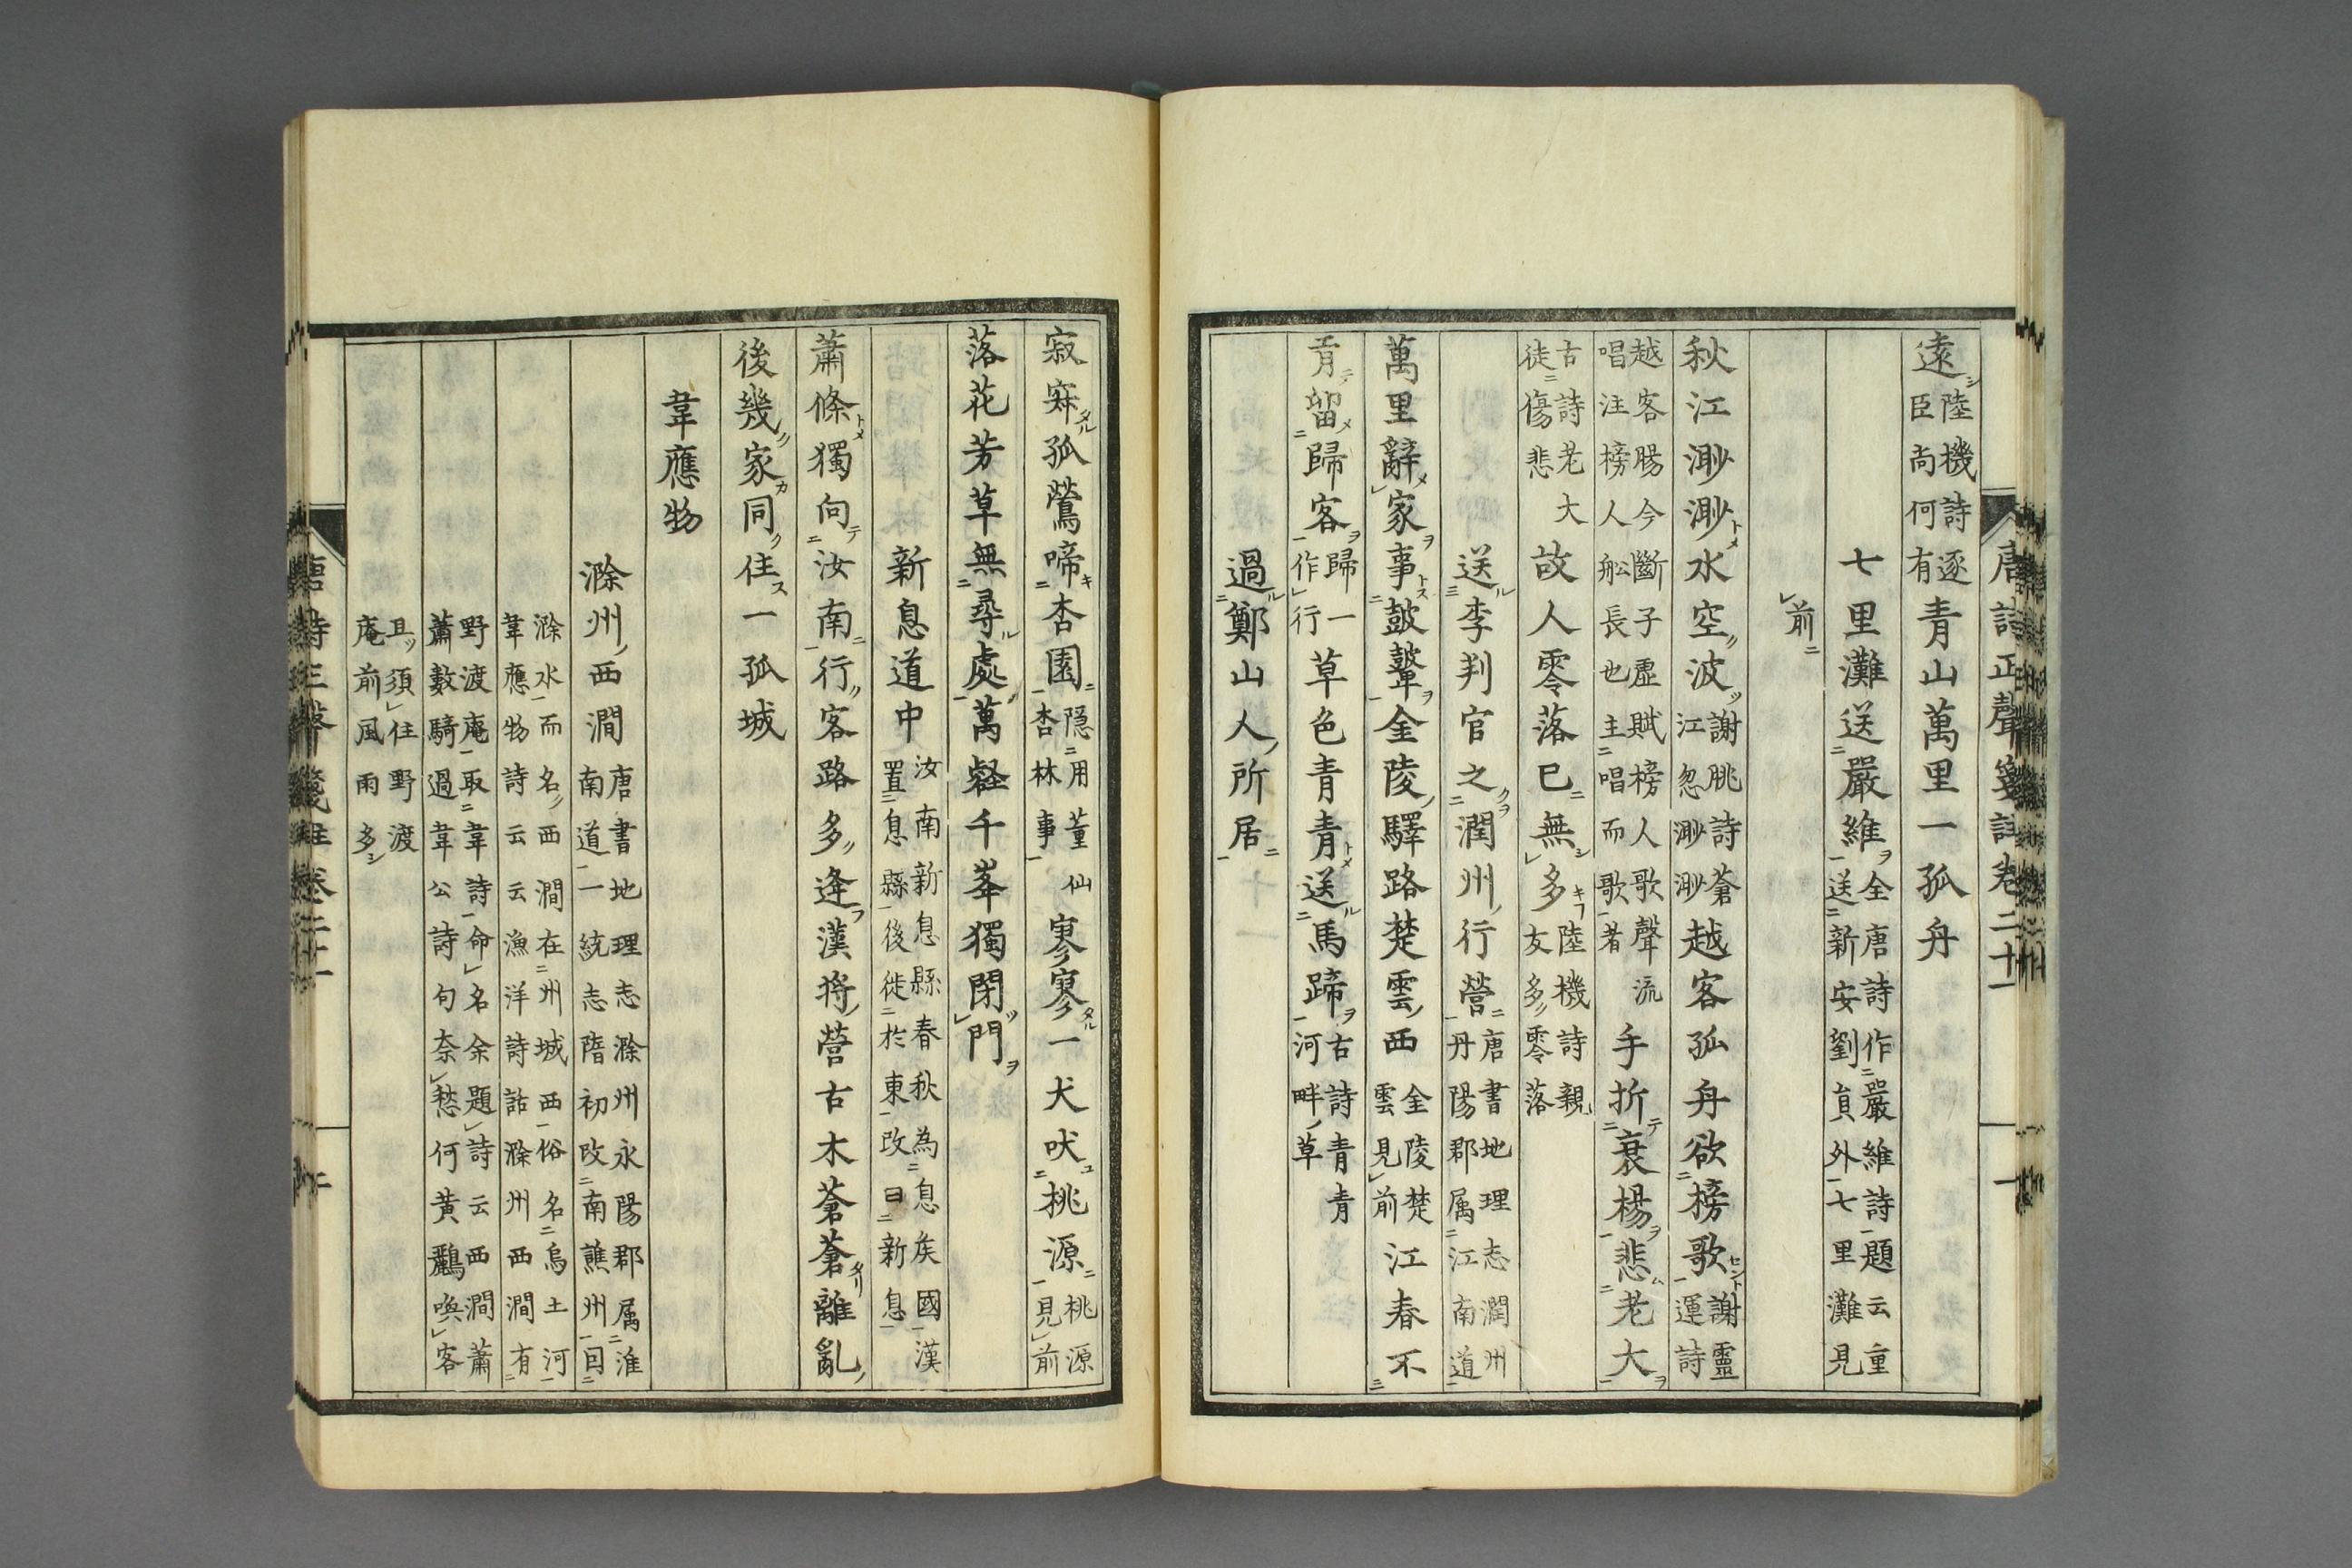 唐詩正聲箋註卷二十一 一
遠陸機詩逐臣尚何有青山萬里一孤舟
七里灘送嚴維全唐詩作嚴維詩題云重送新安劉員外七里灘見
前
秋江渺渺水空波謝朓詩蒼江忽渺渺越客孤舟欲榜歌謝靈運詩
越客腸今斷子虛賦榜人歌聲流唱注榜人舩長也主唱而歌者手折衰楊悲老大
古詩老大徒傷悲故人零落已無多陸機詩親友多零落
送李判官之潤州行營唐書地理志潤州丹陽郡属江南道
萬里辭家事鼓鼙金陵驛路楚雲西金陵楚雲見前江春不
肯留歸客歸一作行草色青青送馬蹄古詩青青河畔草
過鄭山人所居
寂寞孤鶯啼杏園隠用董仙杏林事寥寥一犬吠桃源桃源見前
落花芳草無尋處萬壑千峯獨閉門
新息道中汝南新息縣春秋為息矦國漢置息縣後徙於東改曰新息
蕭條獨向汝南行客路多逢漢將營古木蒼蒼離亂
後幾家同住一孤城
韋應物
滁州西澗唐書地理志滁州永陽郡属淮南道一統志隋初改南譙州曰
滁水而名西澗在州城西俗名烏土河韋應物詩云云漁洋詩話滁州西澗有
野渡庵取韋詩命名余題詩云西澗蕭蕭數騎過韋公詩句奈愁何黄鸝喚客
且須住野渡庵前風雨多
唐詩正聲箋註卷二十一 二